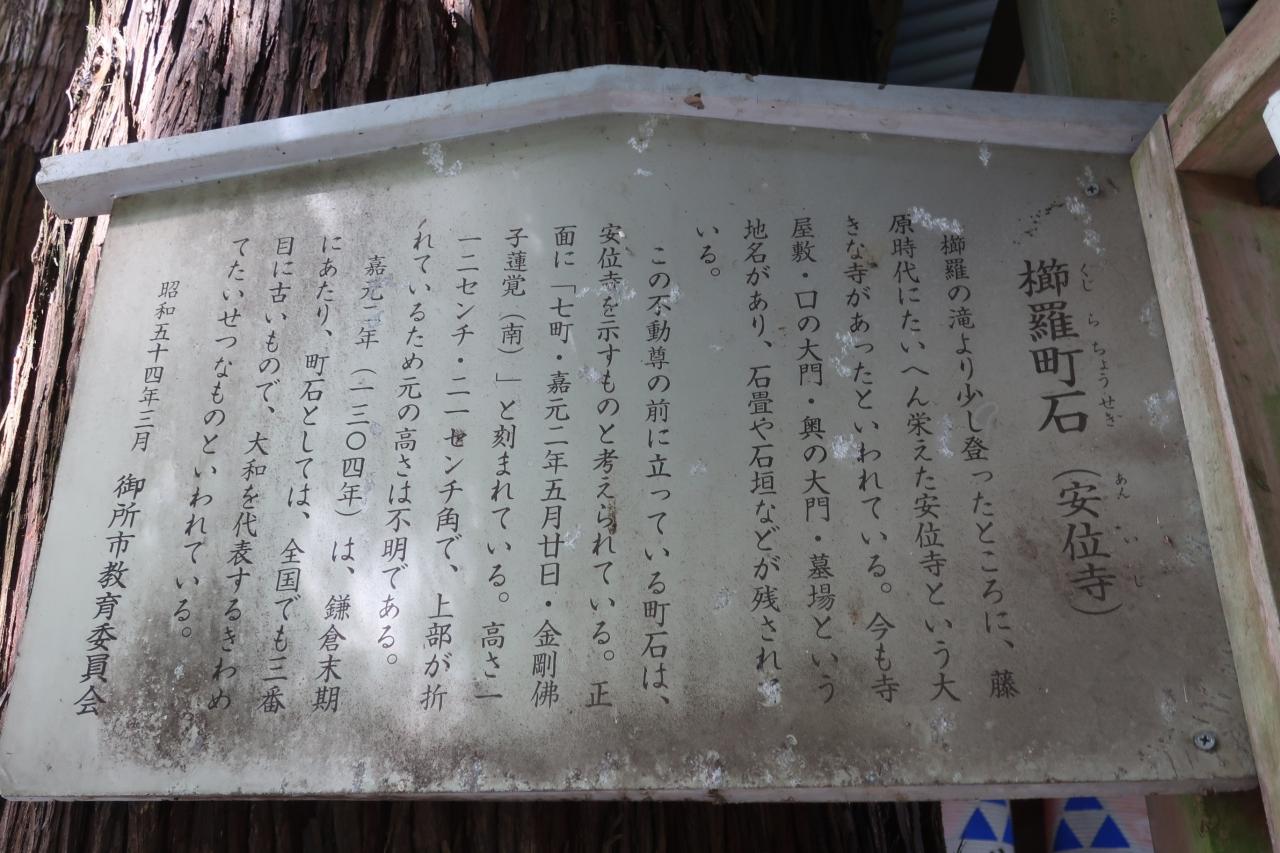 櫛羅町石（安位寺）
くじらちょうせき　あんいじ
櫛羅の滝より少し登ったところに、藤
原時代にたいへん栄えた安位寺という大
きな寺があったといわれている。今も寺
屋敷・口の大門・奥の大門・墓場という
地名があり、石畳や石垣などが残されて
いる。
この不動尊の前に立っている町石は、
安位寺を示すものと考えられている。正
面に「七町・嘉元二年五月廿日・金剛佛
子蓮覚（南）」と刻まれている。高さ一
一二センチ・二一センチ角で、上部が折
れているため元の高さは不明である。
嘉元二年（一三〇四年）は、鎌倉末期
にあたり、町石としては、全国でも三番
目に古いもので、大和を代表するきわめ
てたいせつなものといわれている。
昭和五十四年三月　御所市教育委員会